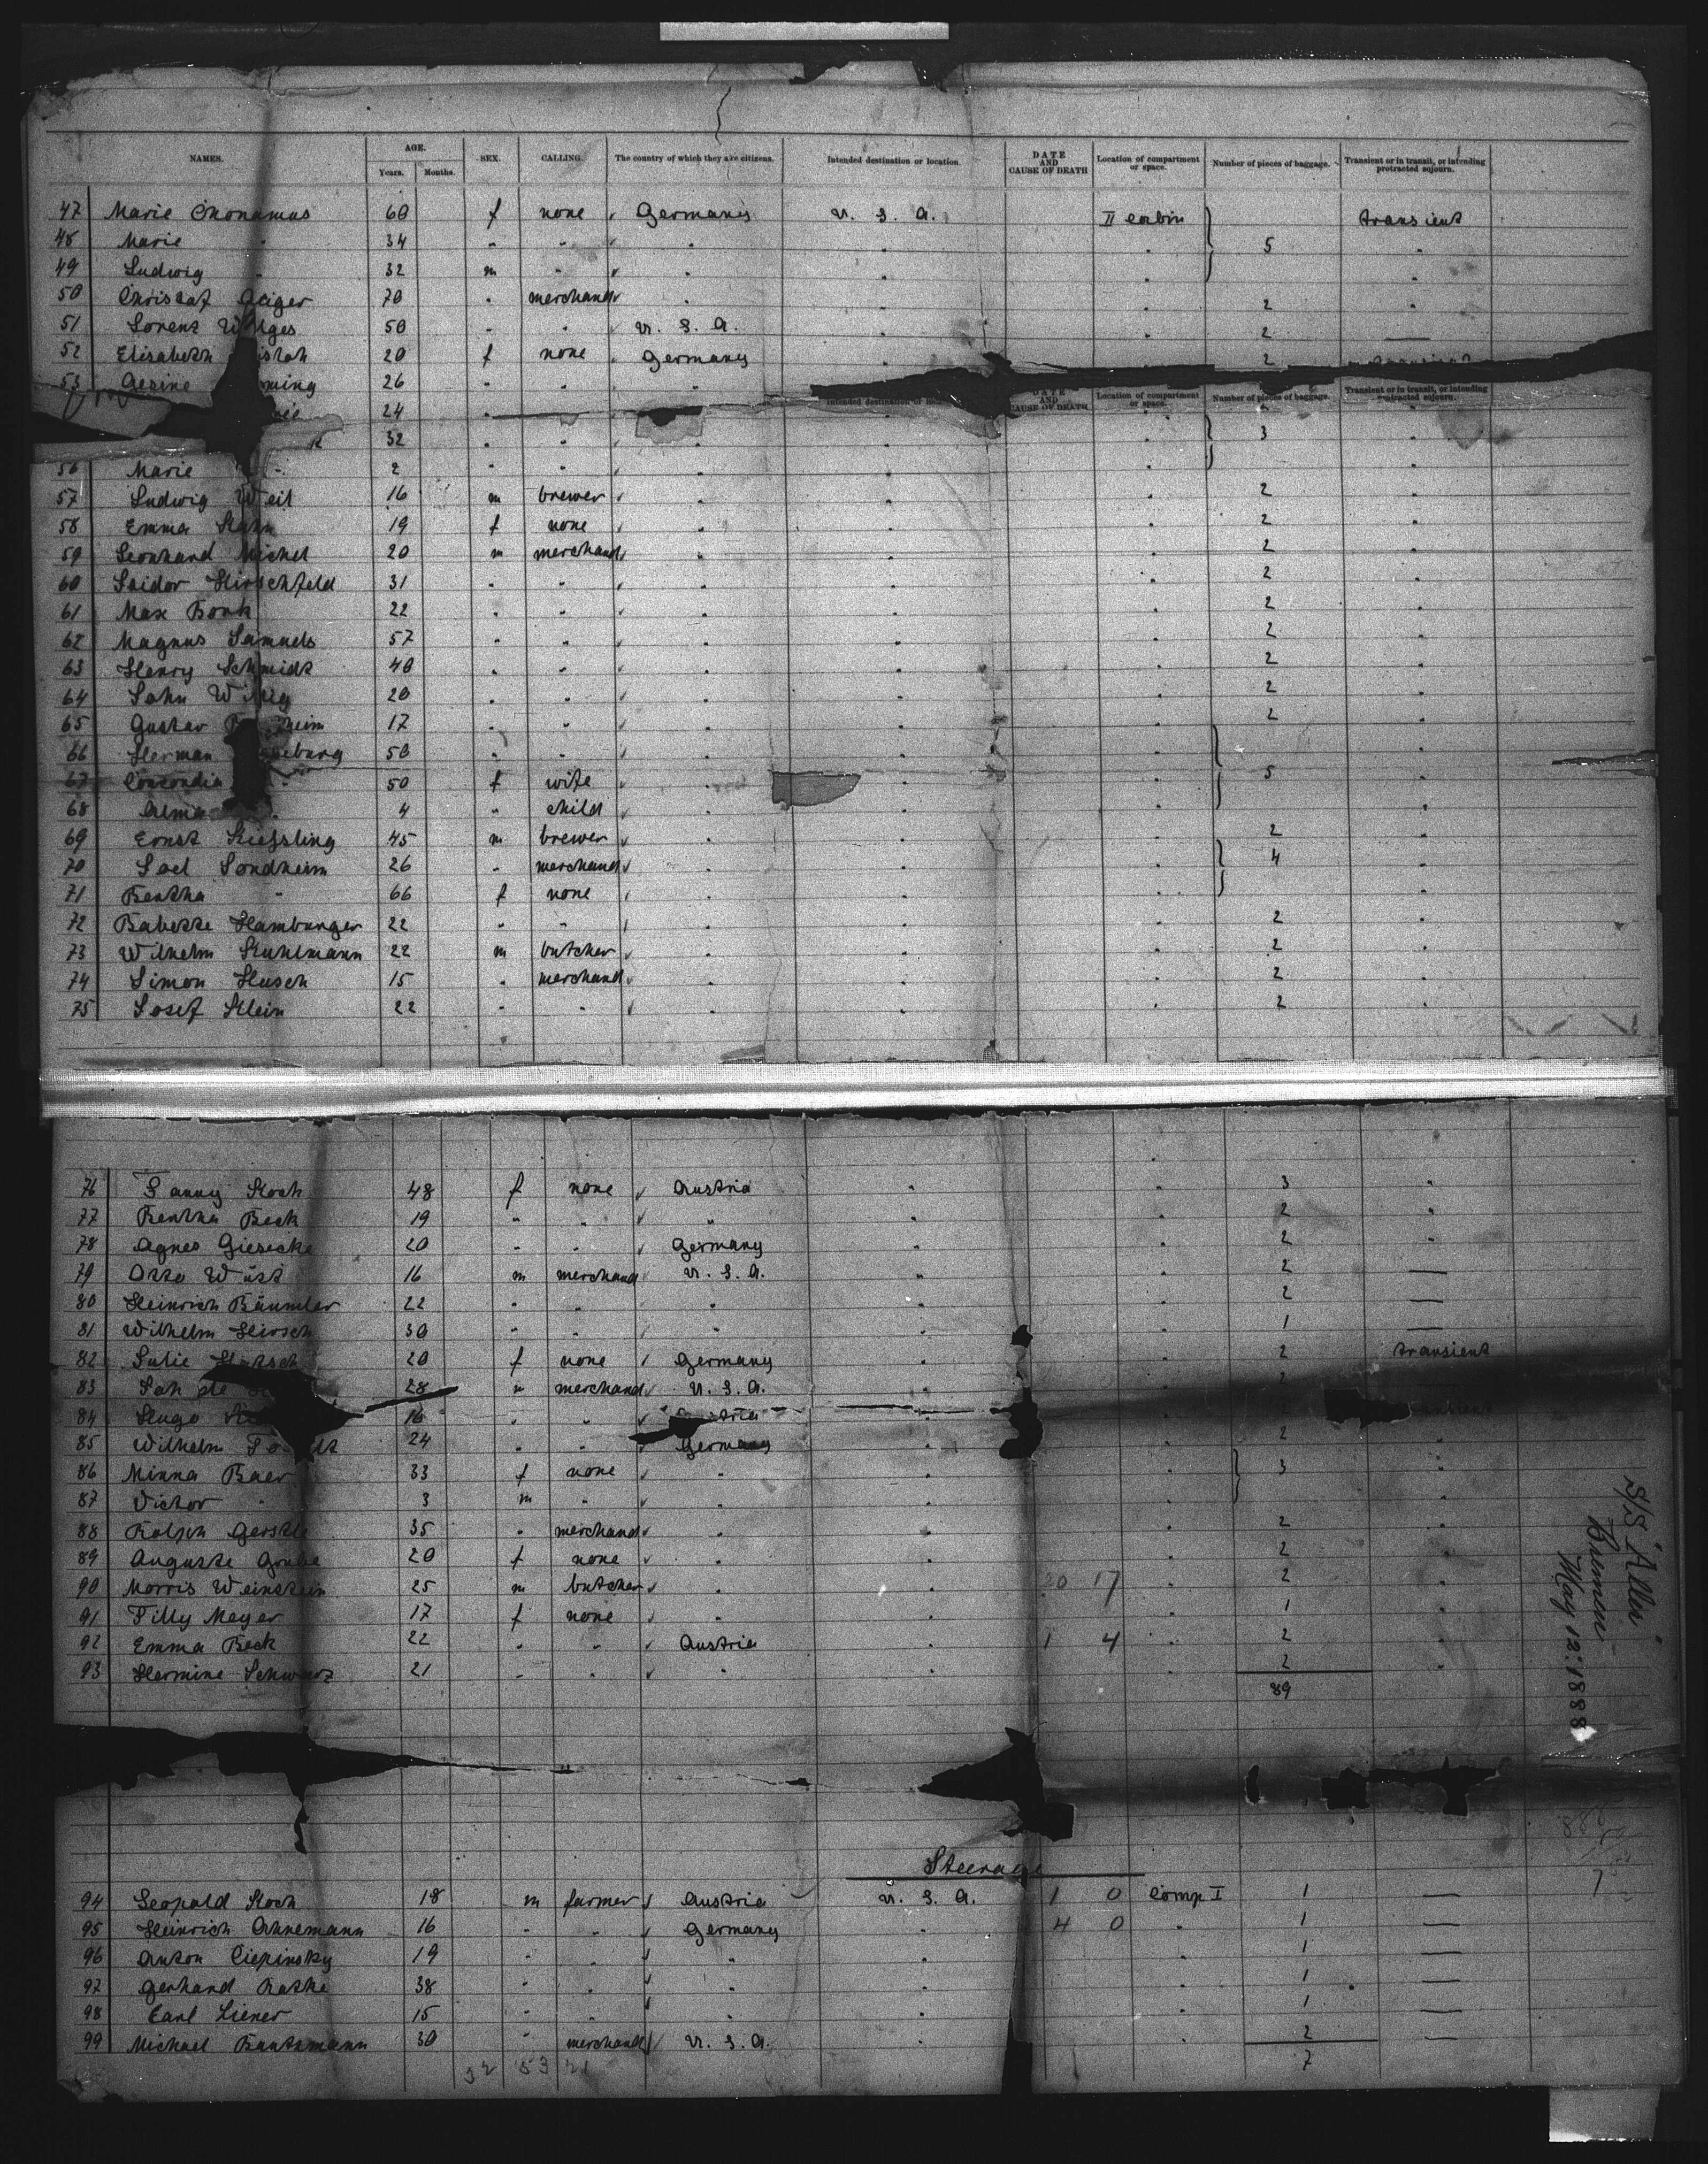 NAMES. AGE. SEX. CALLING. The country of which they are citizens. Intended destination or location. DATE AND CAUSE OF DEATH Location of compartment or space. Number of pieces of baggage. Transient or in transit, or intending protracted sojourn.
Years. Months.
47 Marie 60 f none Germany U. S. A. II cabin transient
48 Marie " 34 " " " " " 5 "
49 Ludwig " 32 m " " " " "
50 Geiger 70 " merchand " " " 2 "
51 Lorenz 50 " " U. S. A. " " 2 —
52 Elisabeth 20 f none Germany " 2
53 Gesine 26 " " "
Intended destination DATE AND CAUSE OF DEATH Location of compartment or space. Number of pieces of baggage. Transient or in transit, or intending protracted sojourn.
24 "
32 " " " " " 3 "
56 Marie " 2 " " " " "
57 Ludwig Weil 16 m brewer " " " 2 "
58 Emma 19 f none " " " 2 "
59 Leonhard Michel 20 m merchand " " " 2 "
60 Isidor Hirschfeld 31 " " " " " 2 "
61 Max Bonk 22 " " " " " 2 "
62 Magnus Samuels 57 " " " " " 2 "
63 Henry Schmidt 40 " " " " " 2 "
64 John 20 " " " " " 2 "
65 Gustav 17 " " " " " 2 "
66 Herman 50 " " " " " "
67 Concondia " 50 f wife " " " 5 "
68 Alma " 4 " child " " " "
69 Ernst Kiessling 45 m brewer " " " 2 "
70 Joel Sondheim 26 " merchand " " " 4 "
71 Bertha " 66 f none " " " "
72 Babette Hamburger 22 " " " " " 2 "
73 Wilhelm Kuhlmann 22 m butcher " " " 2 "
74 Simon Husch 15 " merchand " " " 2 "
75 Josef Klein 22 " " " " " 2 "
76 Fanny Koch 48 f none Austria " " 3 "
77 Bertha Beck 19 " " " " " 2 "
78 Agnes Giesecke 20 " " Germany " " 2 "
79 Otto Wüst 16 m merchand U. S. A. " " 2 —
80 Heinrich Bäumler 22 " " " " " 2 —
81 Wilhelm Hirsch 30 " " " " " 1 —
82 Julie 20 f none Germany " " 2 transient
83 28 m merchand U. S. A. "
84 Hugo 16 " " "
85 Wilhelm 24 " " Germany " " 2 "
86 Minna Baer 33 f none " " " 3 "
87 Victor " 3 m " " " " "
88 Ralph Gerstle 35 " merchand " " " 2 "
89 Auguste 20 f none " " " 2 "
90 Morris Weinstein 25 m butcher " " 20 17 " 2 "
91 Tilly Meyer 17 f none " " " 1 "
92 Emma Beck 22 " " Austria " 1 4 " 2 "
93 Hermine Schwarz 21 " " " " " 2 "
89
S/S "Aller"
Bremen
May 12. 1888
Steerage
94 Leopold Koch 18 m farmer Austria U. S. A. 1 0 Comp I 1 —
95 Heinrich Ahnemann 16 " " Germany " 4 0 " 1 —
96 Anton Ciepinsky 19 " " " " " 1 —
97 Gerhard Rathe 38 " " " " " 1 —
98 Carl Liener 15 " " " " " 1 —
99 Michael Bautzmann 30 " merchand U. S. A. " " 2 —
32 53 21 7